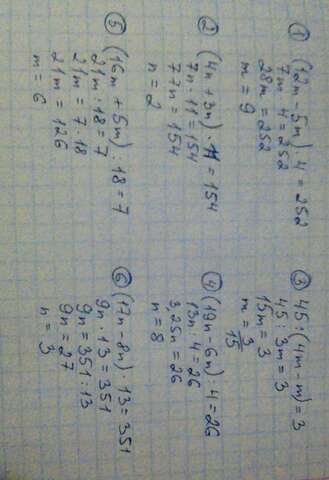 ① (12m - 5m) · 4 = 252
7m · 4 = 252
28m = 252
m = 9
② (4n + 3n) · 11 = 154
7n · 11 = 154
77n = 154
n = 2
③ 45 : (4m - m) = 3
45 : 3m = 3
15m = 3
m = 3/15
④ (19n - 6n) : 4 = 26
13n : 4 = 26
3,25n = 26
n = 8
⑤ (16m + 5m) : 18 = 7
21m : 18 = 7
21m = 7 · 18
21m = 126
m = 6
⑥ (17n - 8n) · 13 = 351
9n · 13 = 351
9n = 351 : 13
9n = 27
n = 3